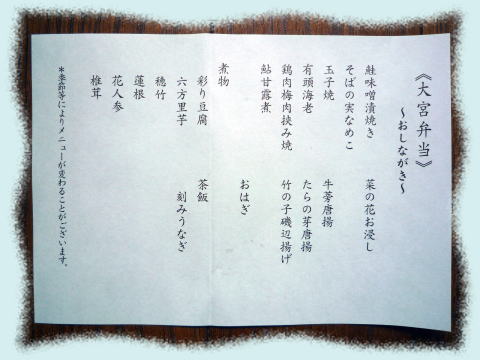 《大宮弁当》
～おしながき～
鮭味噌漬焼き　菜の花お浸し
そばの実なめこ
玉子焼　牛蒡唐揚
有頭海老　たらの芽唐揚
鶏肉梅肉挟み焼　竹の子磯辺揚げ
鮎甘露煮
おはぎ
煮物
彩り豆腐　茶飯
六方里芋　刻みうなぎ
穂竹
蓮根
花人参
椎茸
＊季節等によりメニューが変わることがございます。